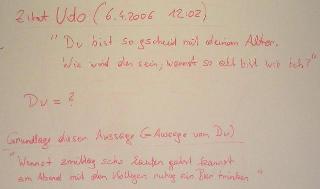 Zitat Udo (6.4.2006 12:02)
"Du bist so gscheid mit deinem Alter.
Wie wird des sein, wennst so alt bist wie ich?"
Du = ?
Grundlage dieser Aussage (= Aussage von Du)
"Wennst zmittag scho laufen gehst kannst
am Abend mit den Kollegen ruhig ein Bier trinken"